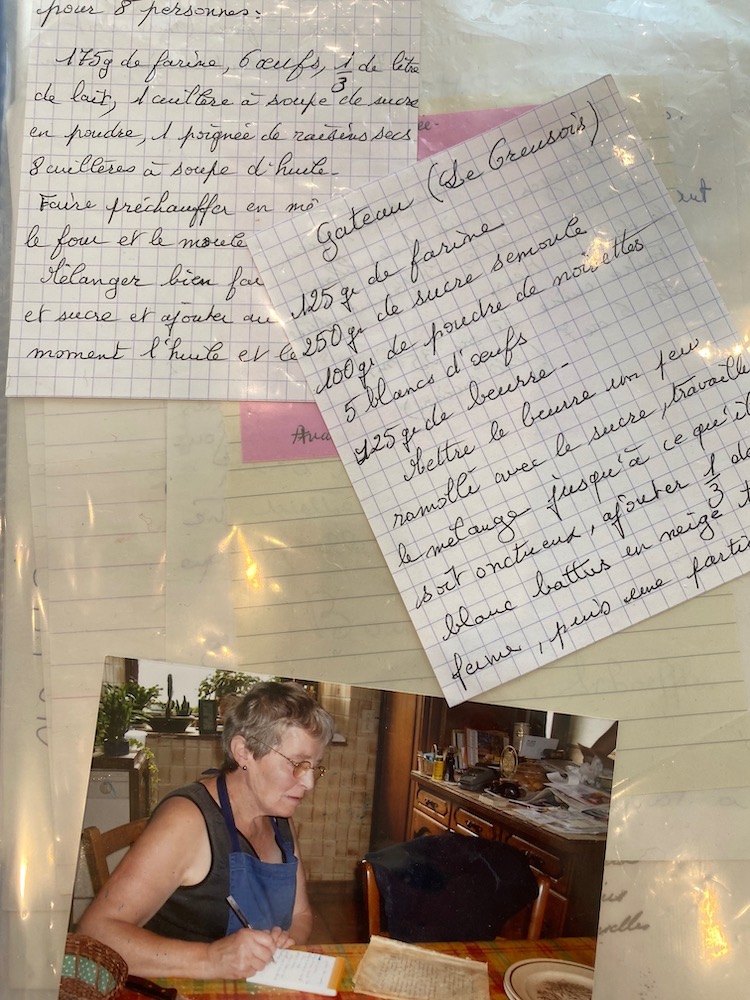 pour 8 personnes:
175g de farine, 6 œufs, 1/3 de litre
de lait, 1 cuillère à soupe de sucre
en poudre, 1 poignée de raisins secs
8 cuillères à soupe d'huile.
Faire préchauffer en mê
le four et le moule
Mélanger bien far
et sucre et ajouter au
moment l'huile et le
Gateau (Le Creusois)
125 gr de farine
250 gr de sucre semoule
100 gr de poudre de noisettes
5 blancs d'œufs
125 gr de beurre.
Mettre le beurre un peu
ramolli avec le sucre, travaille
le mélange jusqu'à ce qu'il
soit onctueux, ajouter 1/3 de
blanc battus en neige t
ferme, puis une partie